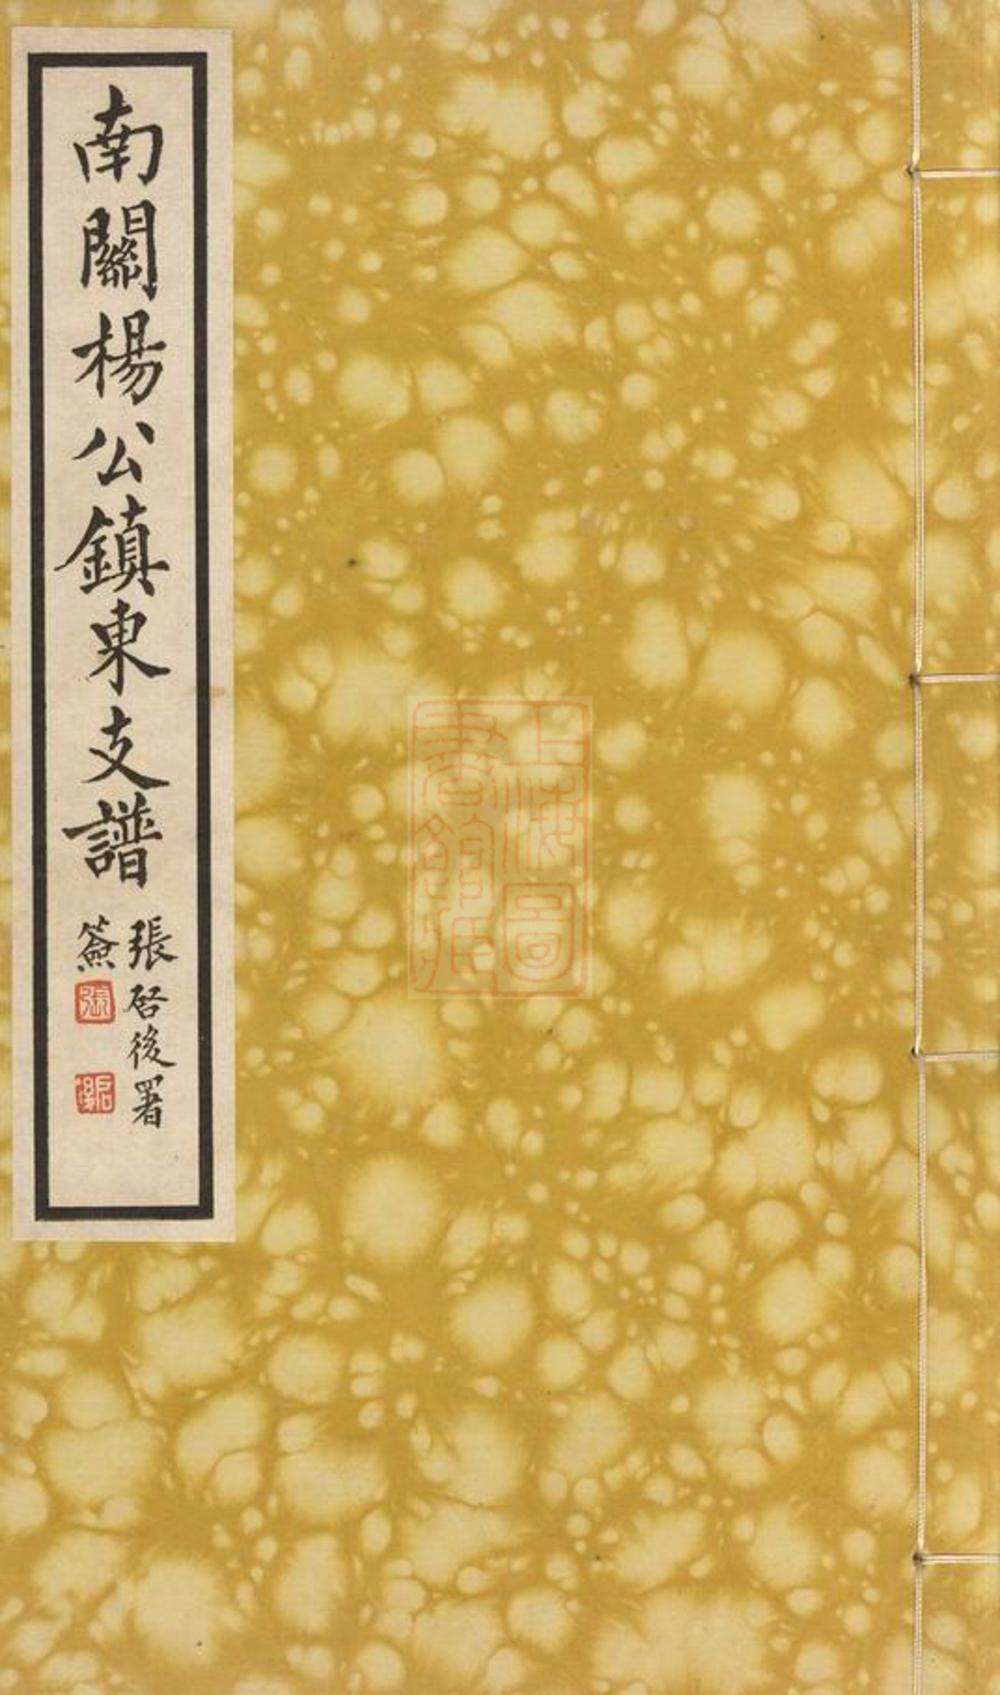 南關楊公鎮東支譜
張启後署
簽
上海圖
書館藏